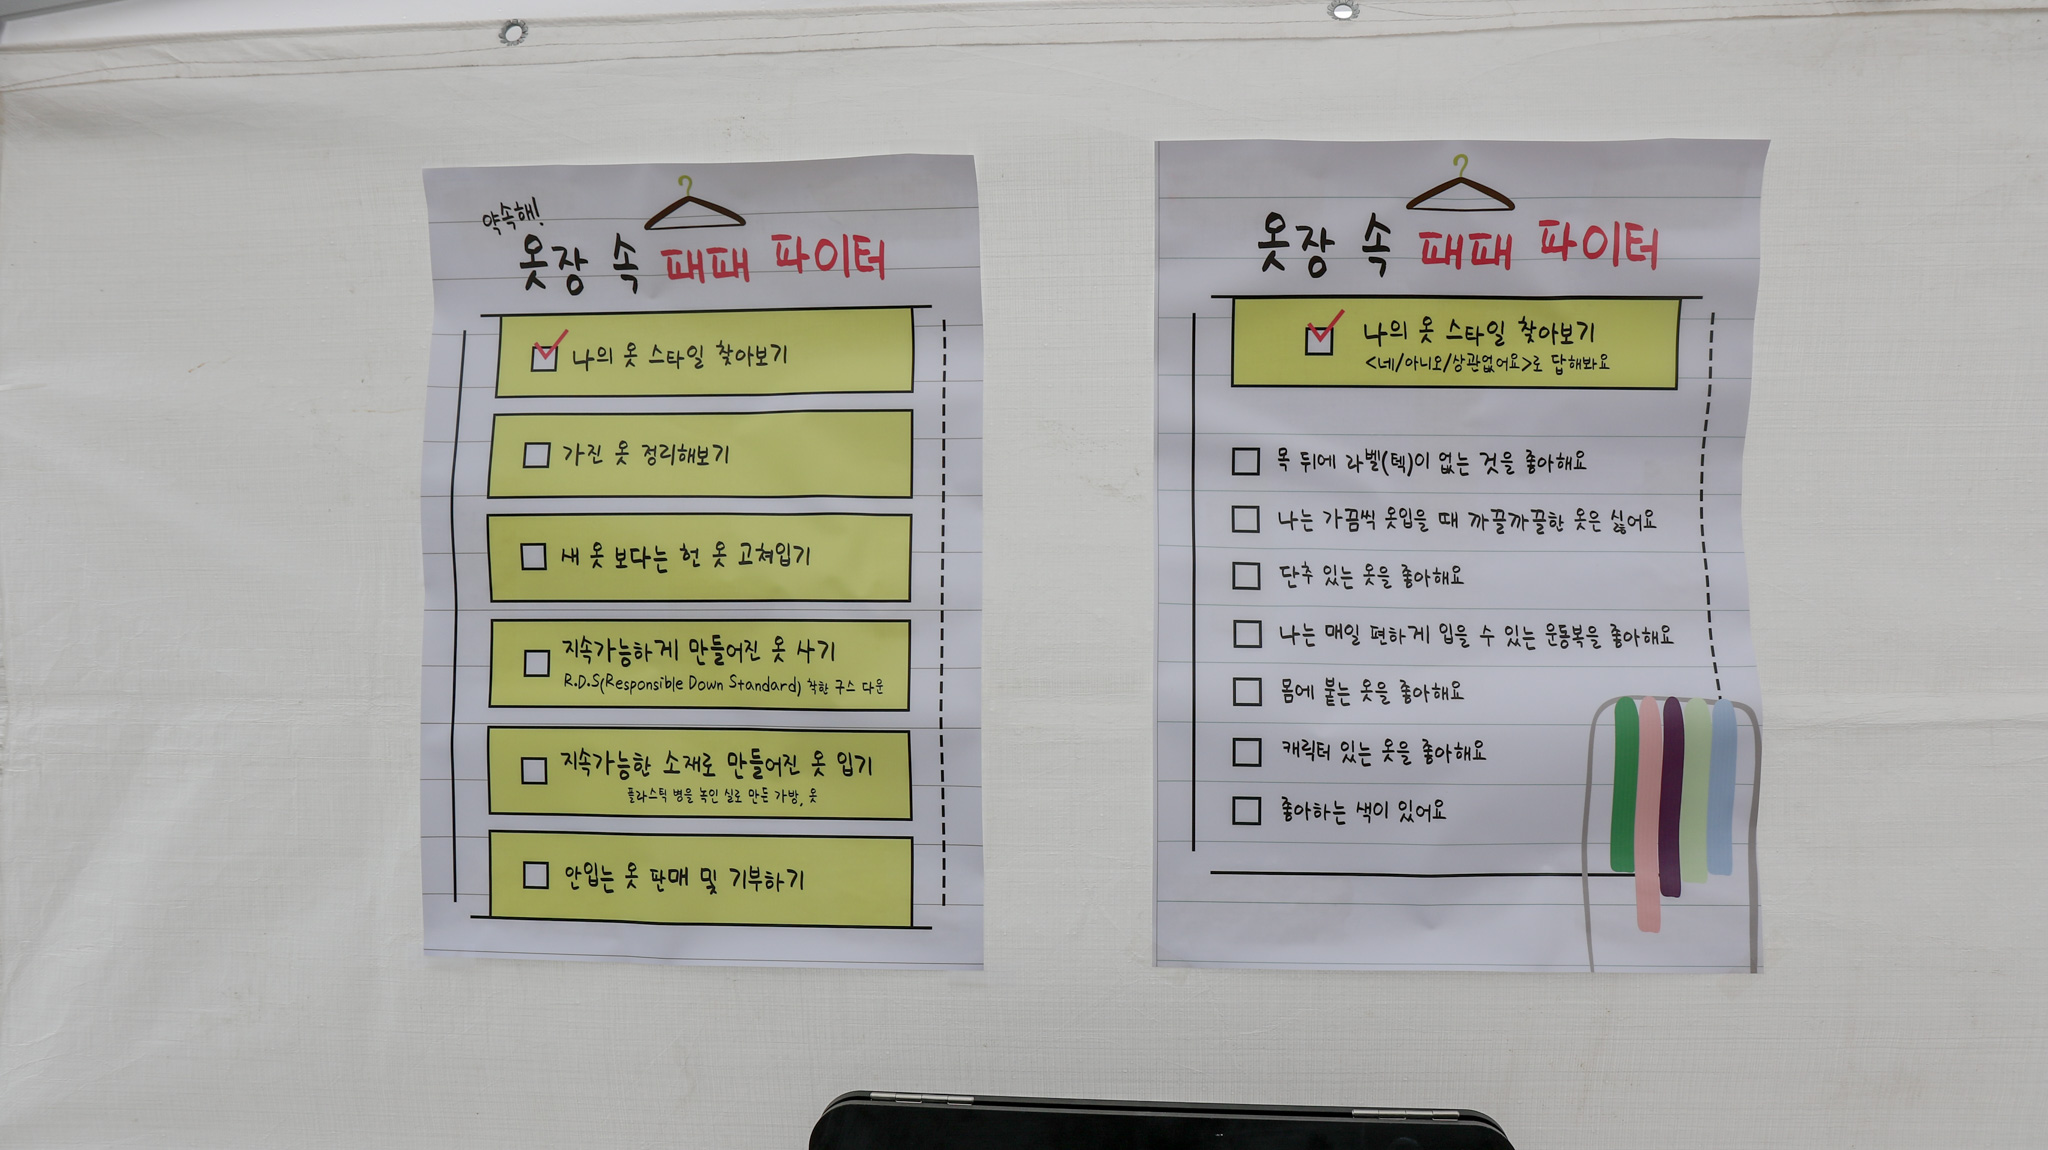 약속해!
옷장 속 패패 파이터
나의 옷 스타일 찾아보기
가진 옷 정리해보기
새 옷 보다는 헌 옷 고쳐입기
지속가능하게 만들어진 옷 사기
R.D.S(Responsible Down Standard) 착한 구스 다운
지속가능한 소재로 만들어진 옷 입기
플라스틱 병을 녹인 실로 만든 가방, 옷
안입는 옷 판매 및 기부하기
옷장 속 패패 파이터
나의 옷 스타일 찾아보기
<네/아니오/상관없어요>로 답해봐요
목 뒤에 라벨(텍)이 없는 것을 좋아해요
나는 가끔씩 옷입을 때 까끌까끌한 옷은 싫어요
단추 있는 옷을 좋아해요
나는 매일 편하게 입을 수 있는 운동복을 좋아해요
몸에 붙는 옷을 좋아해요
캐릭터 있는 옷을 좋아해요
좋아하는 색이 있어요